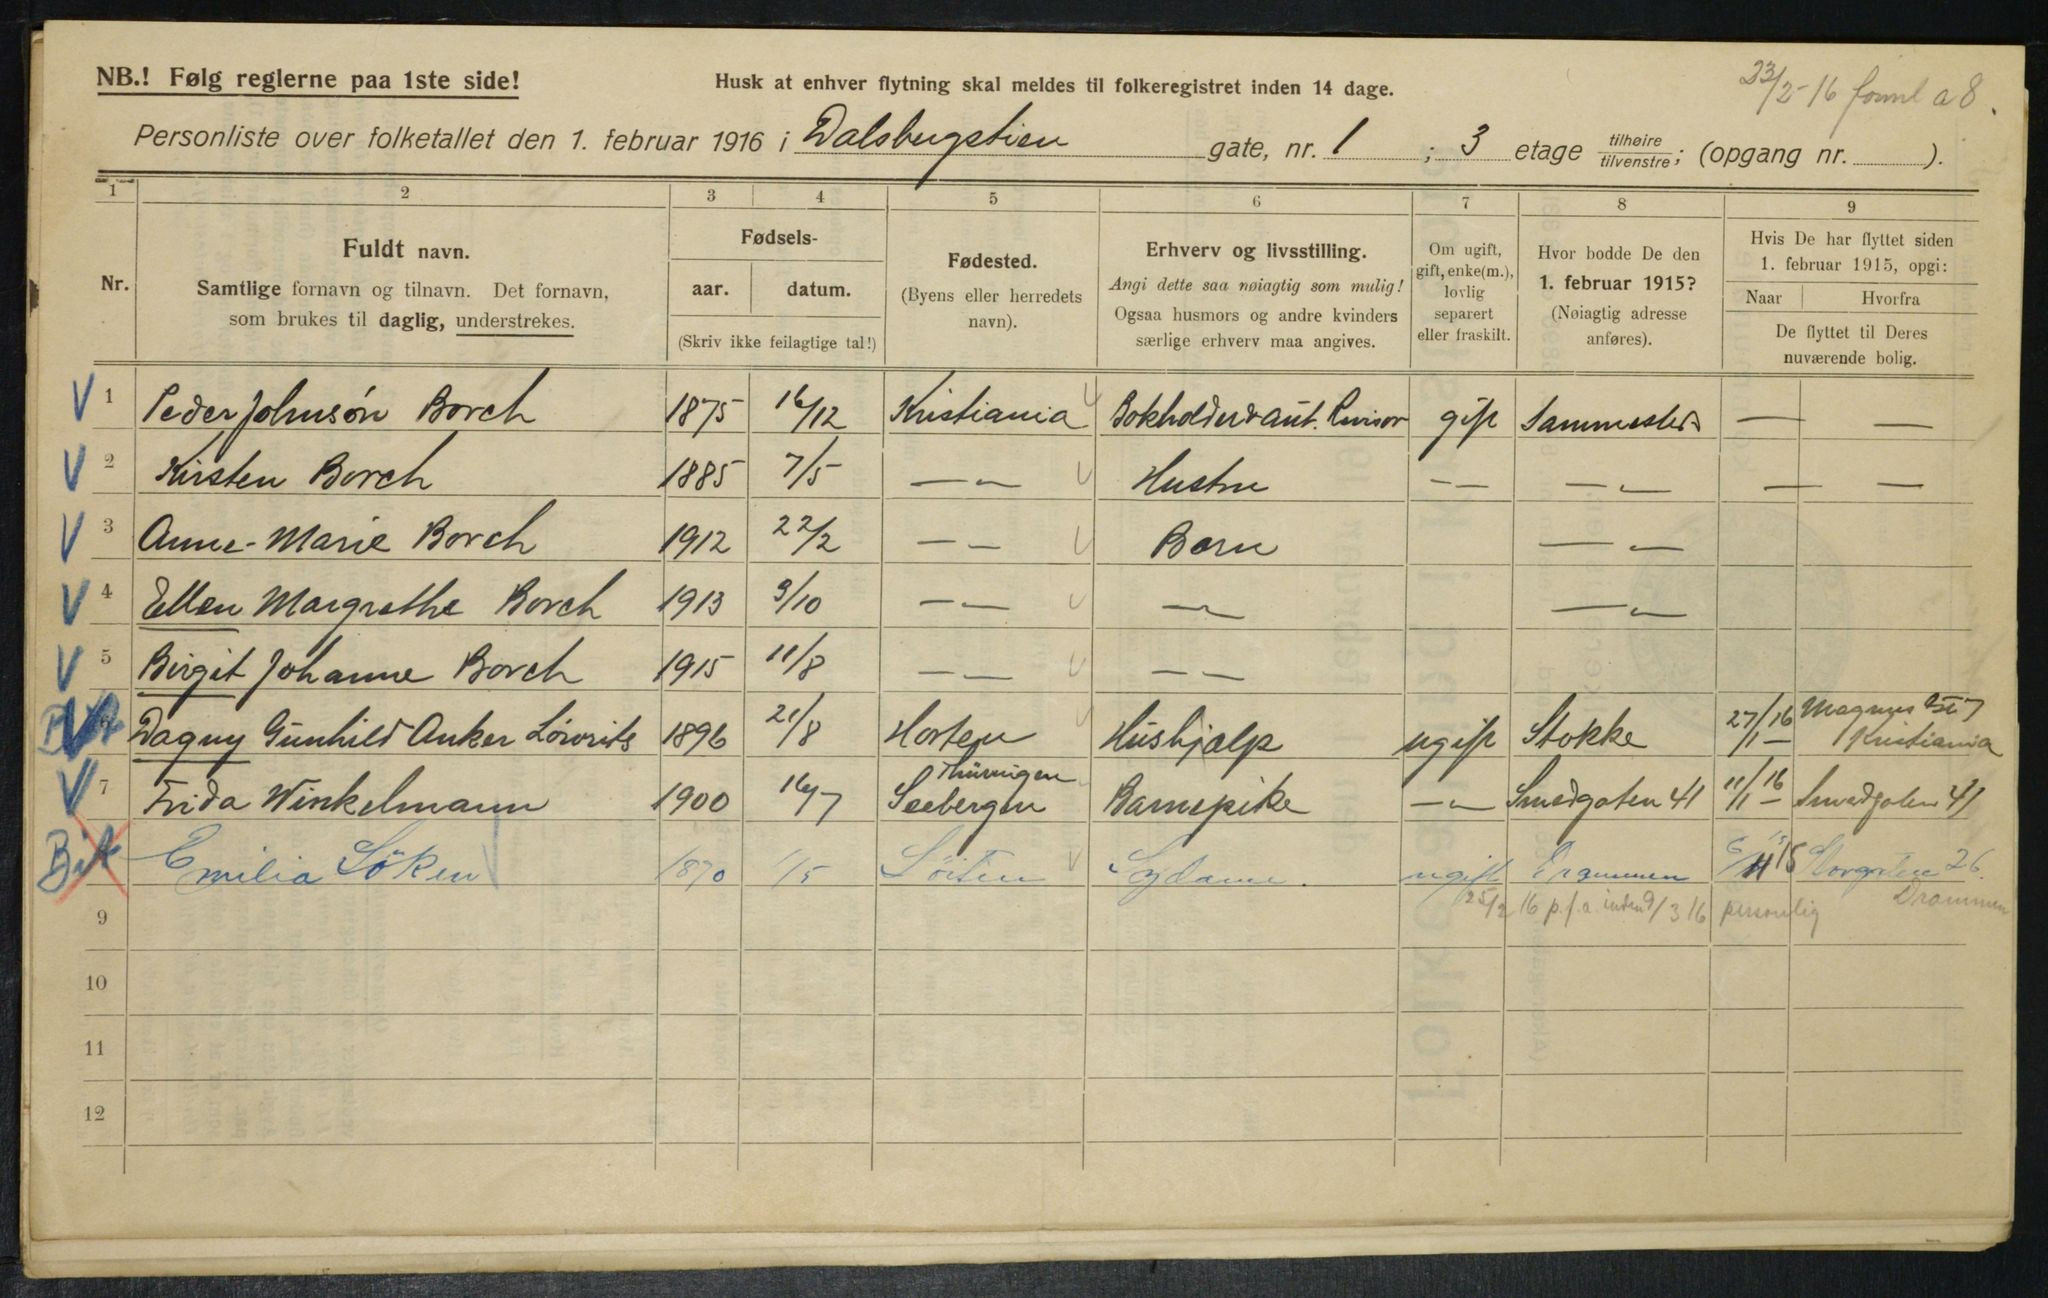 23/2-16 a 8.
NB.! Følg reglerne paa 1ste side!
Husk at enhver flytning skal meldes til folkeregistret inden 14 dage.
Personliste over folketallet den 1. februar 1916 i Dalsbugstien gate, nr. 1 ; 3 etage tilhøire/tilvenstre; (opgang nr. ).
1 2 3 4 5 6 7 8 9
Nr.
Fuldt navn.
Samtlige fornavn og tilnavn. Det fornavn,
som brukes til daglig, understrekes.
Fødsels-
aar. datum.
(Skriv ikke feilagtige tal!)
Fødested.
(Byens eller herredets
navn).
Erhverv og livsstilling.
Angi dette saa nøiagtig som mulig!
Ogsaa husmors og andre kvinders
særlige erhverv maa angives.
Om ugift,
gift, enke(m.),
lovlig
separert
eller fraskilt.
Hvor bodde De den
1. februar 1915?
(Nøiagtig adresse
anføres).
Hvis De har flyttet siden
1. februar 1915, opgi:
Naar Hvorfra
De flyttet til Deres
nuværende bolig.
V 1 Peder Johnson Borch 1875 16/12 Kristiania Bokholder & aut. Revisor gift Sammesteds — —
V 2 Kirsten Borch 1885 7/5 — " — Hustru — — — " — — —
V 3 Anne-Marie Borch 1912 22/2 — " — Barn — " —
V 4 Ellen Margrethe Borch 1913 9/10 — " — — " — — " —
V 5 Birgit Johanne Borch 1915 11/8 — " — — " —
Dagny Gunhild Anker 1896 21/8 Horten Hushjælp ugift Stokke 27/1 - 16 Magnus gt 7
Kristiania
V 7 Frida Winkelmann 1900 16/7 Thüringen
Seebergen Barnepike — " — Smedgaten 41 11/1 - 16 Smedgaten 41
Emilia Söken 1870 1/5 Löiten Sydame. ugift Drammen 15 Storgaten 26.
Drammen
25/2 16 p.f.a. inden 9/3 16 personlig
9
10
11
12